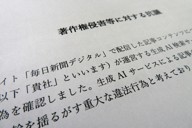 著作権侵害等に対する抗議
イト「毎日新聞デジタル」で配信した記事コンテンツに
以下「貴社」といいます)が運営する生成AI検索サー
為を確認しました。生成AIサービスによる記事
給を揺るがす重大な違法行為と考えており